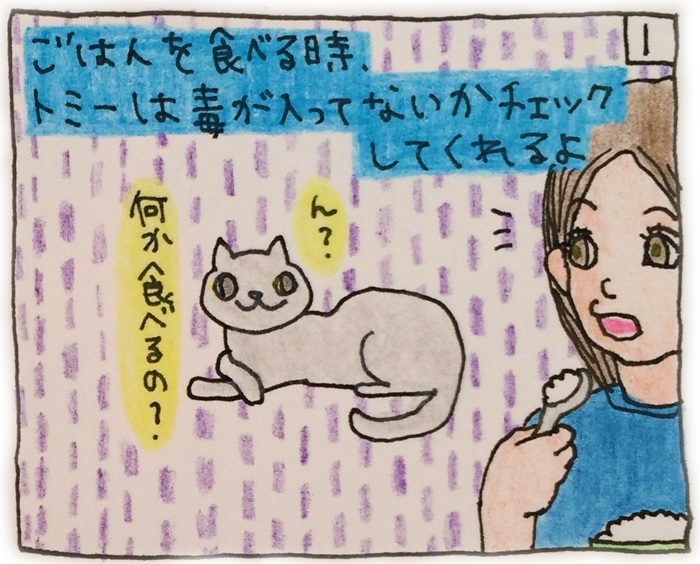 1
ごはんを食べる時、
トミーは毒が入ってないかチェック
してくれるよ
ん?
何か食べるの?